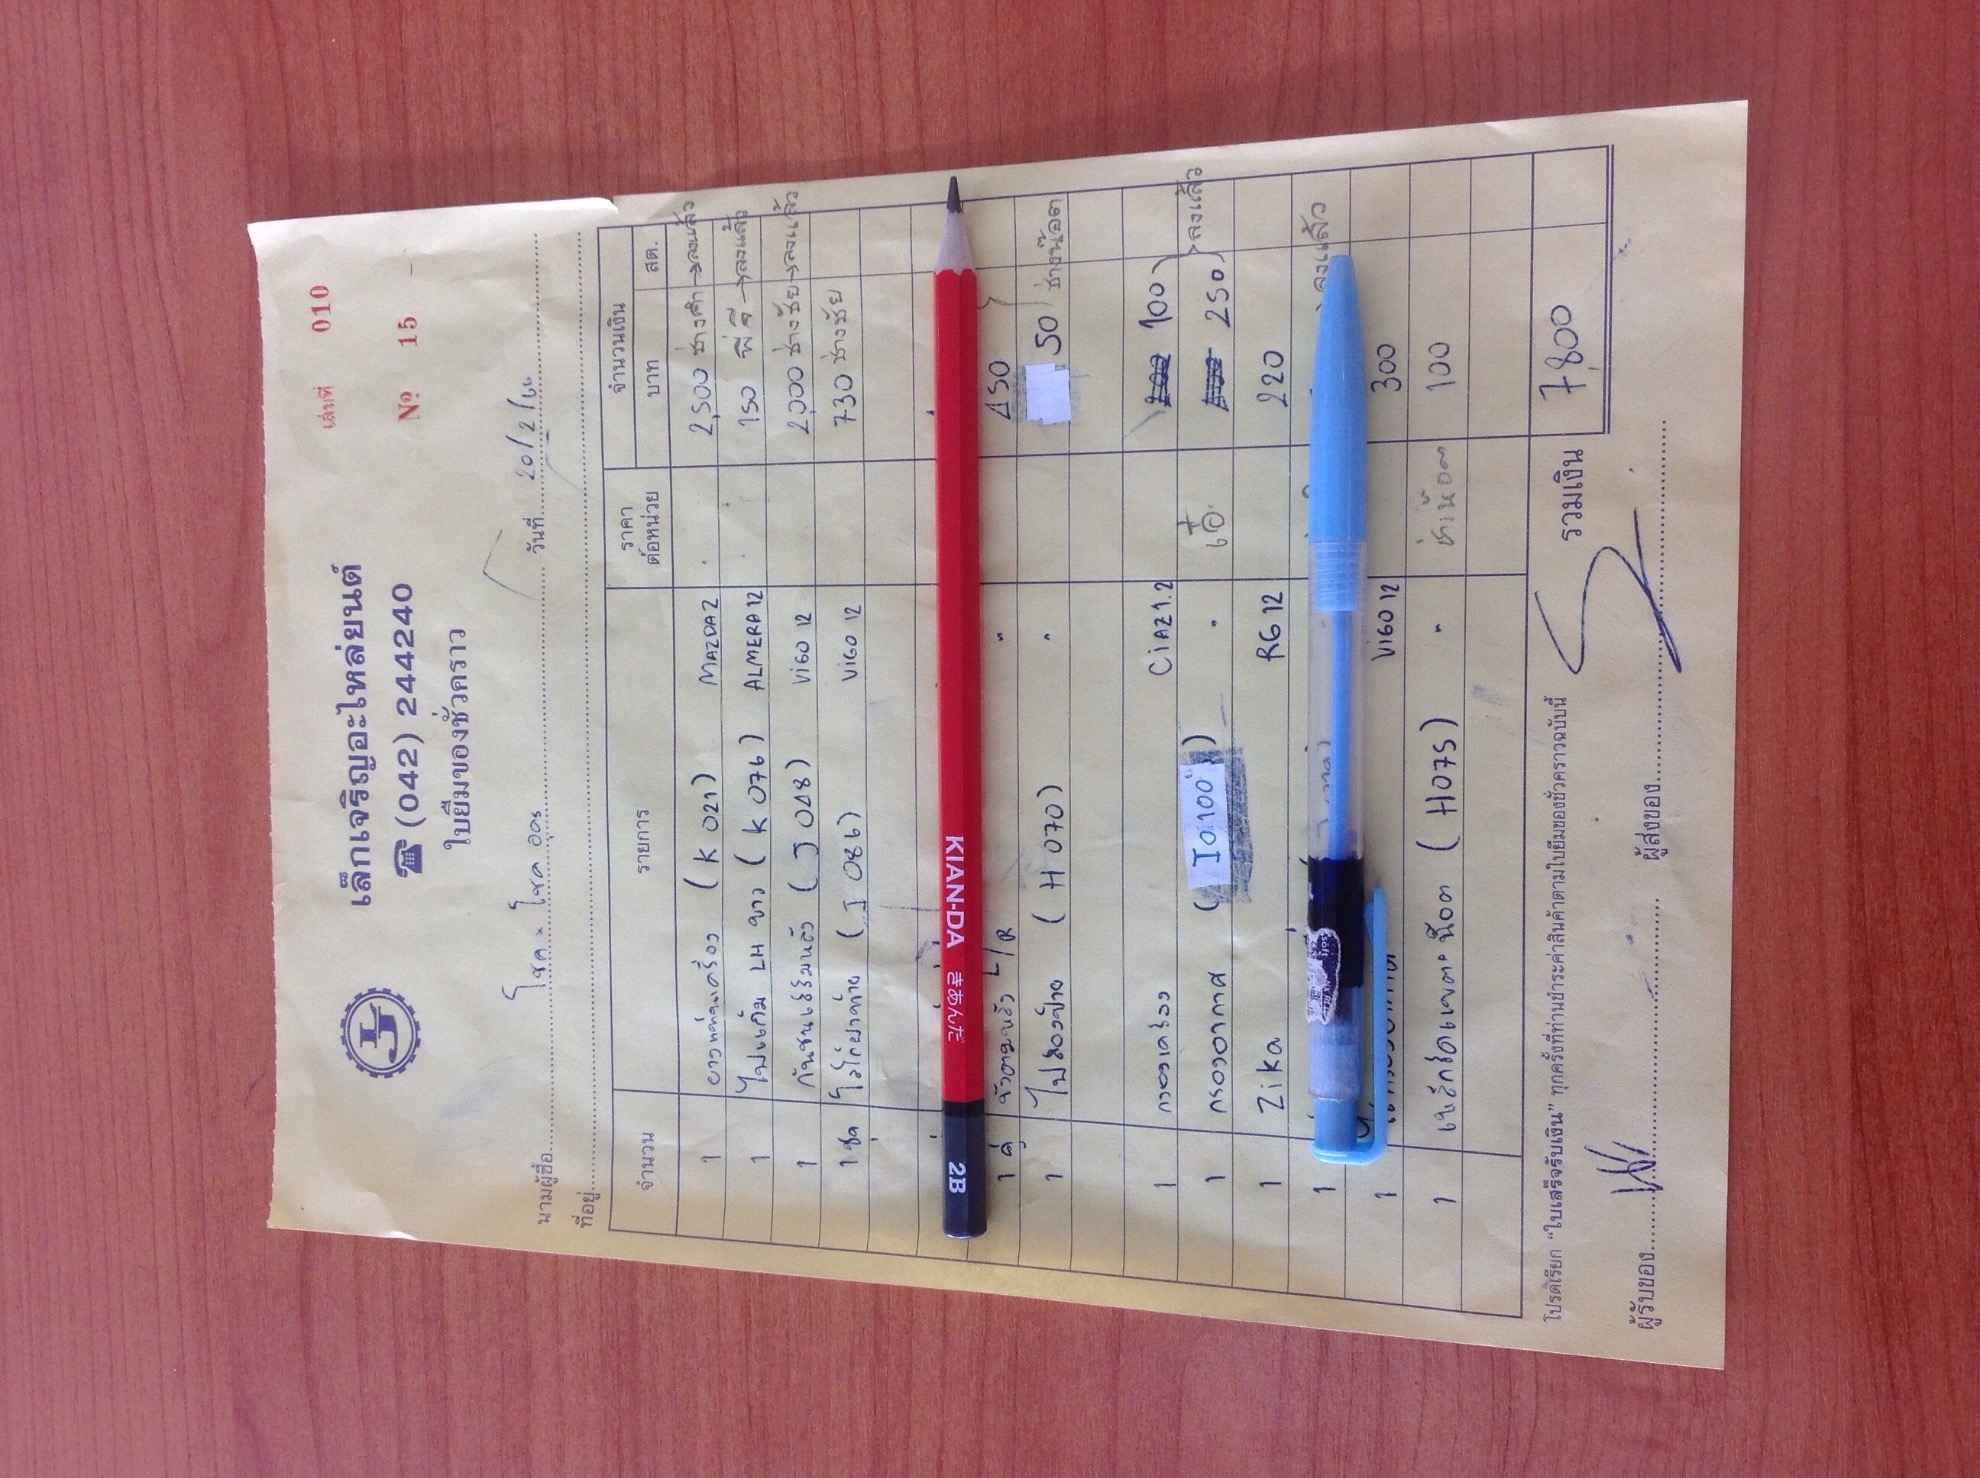 เล่มที่ 010
เล็กเจริญอะไหล่ยนต์
☎ (042) 244240
Nº 15
ใบยืมของชั่วคราว
นามผู้ซื้อ โชค x โชค อุดร วันที่ 20/2/66
ที่อยู่
จำนวน รายการ ราคาต่อหน่วย จำนวนเงิน บาท สต.
1 ยางแท่นเครื่อง (K 021) MAZDA2 2,500 ช่างดำ → ลงแล้ว
1 ไฟแก้ม LH ขาว (K 076) ALMERA12 150 → ลงแล้ว
1 กันชนเสริมหน้า (J 048) VIGO 12 2,000 ช่างชัย → ลงแล้ว
1 ชุด (J 086) VIGO 12 730 ช่างชัย
1 คู่ L/R " 450
1 ไฟส่องป้าย (H 070) " 50 ช่างน๊อต
1 กรองเครื่อง CIAZ1.2 100
1 กรองอากาศ (I0100) " เอ๋ 250 > ลงแล้ว
1 Zika RG 12 220
1 ลงแล้ว
1 VIGO 12 300
1 (H075) " 100
โปรดเรียก "ใบเสร็จรับเงิน" ทุกครั้งที่ท่านชำระค่าสินค้าตามใบยืมของชั่วคราวฉบับนี้ รวมเงิน 7,800
ผู้รับของ ผู้ส่งของ
KIAN-DA きあんだ 2B